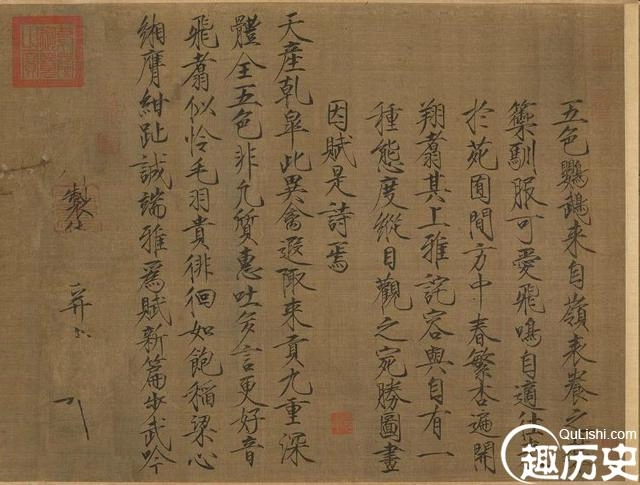 五色鸚鵡來自嶺表養之
籞馴服可愛飛鳴自適往
於苑囿間方中春繁杏遍開
翔翥其上雅詫容與自有一
種態度縱目觀之宛勝圖畫
因賦是詩焉
天產乾皋此異禽遐陬來貢九重深
體全五色非凡質惠吐多言更好音
飛翥似憐毛羽貴徘徊如飽稻粱心
緗膺紺趾誠端雅爲賦新篇步武吟
製
并
QuLishi.com
趣历史